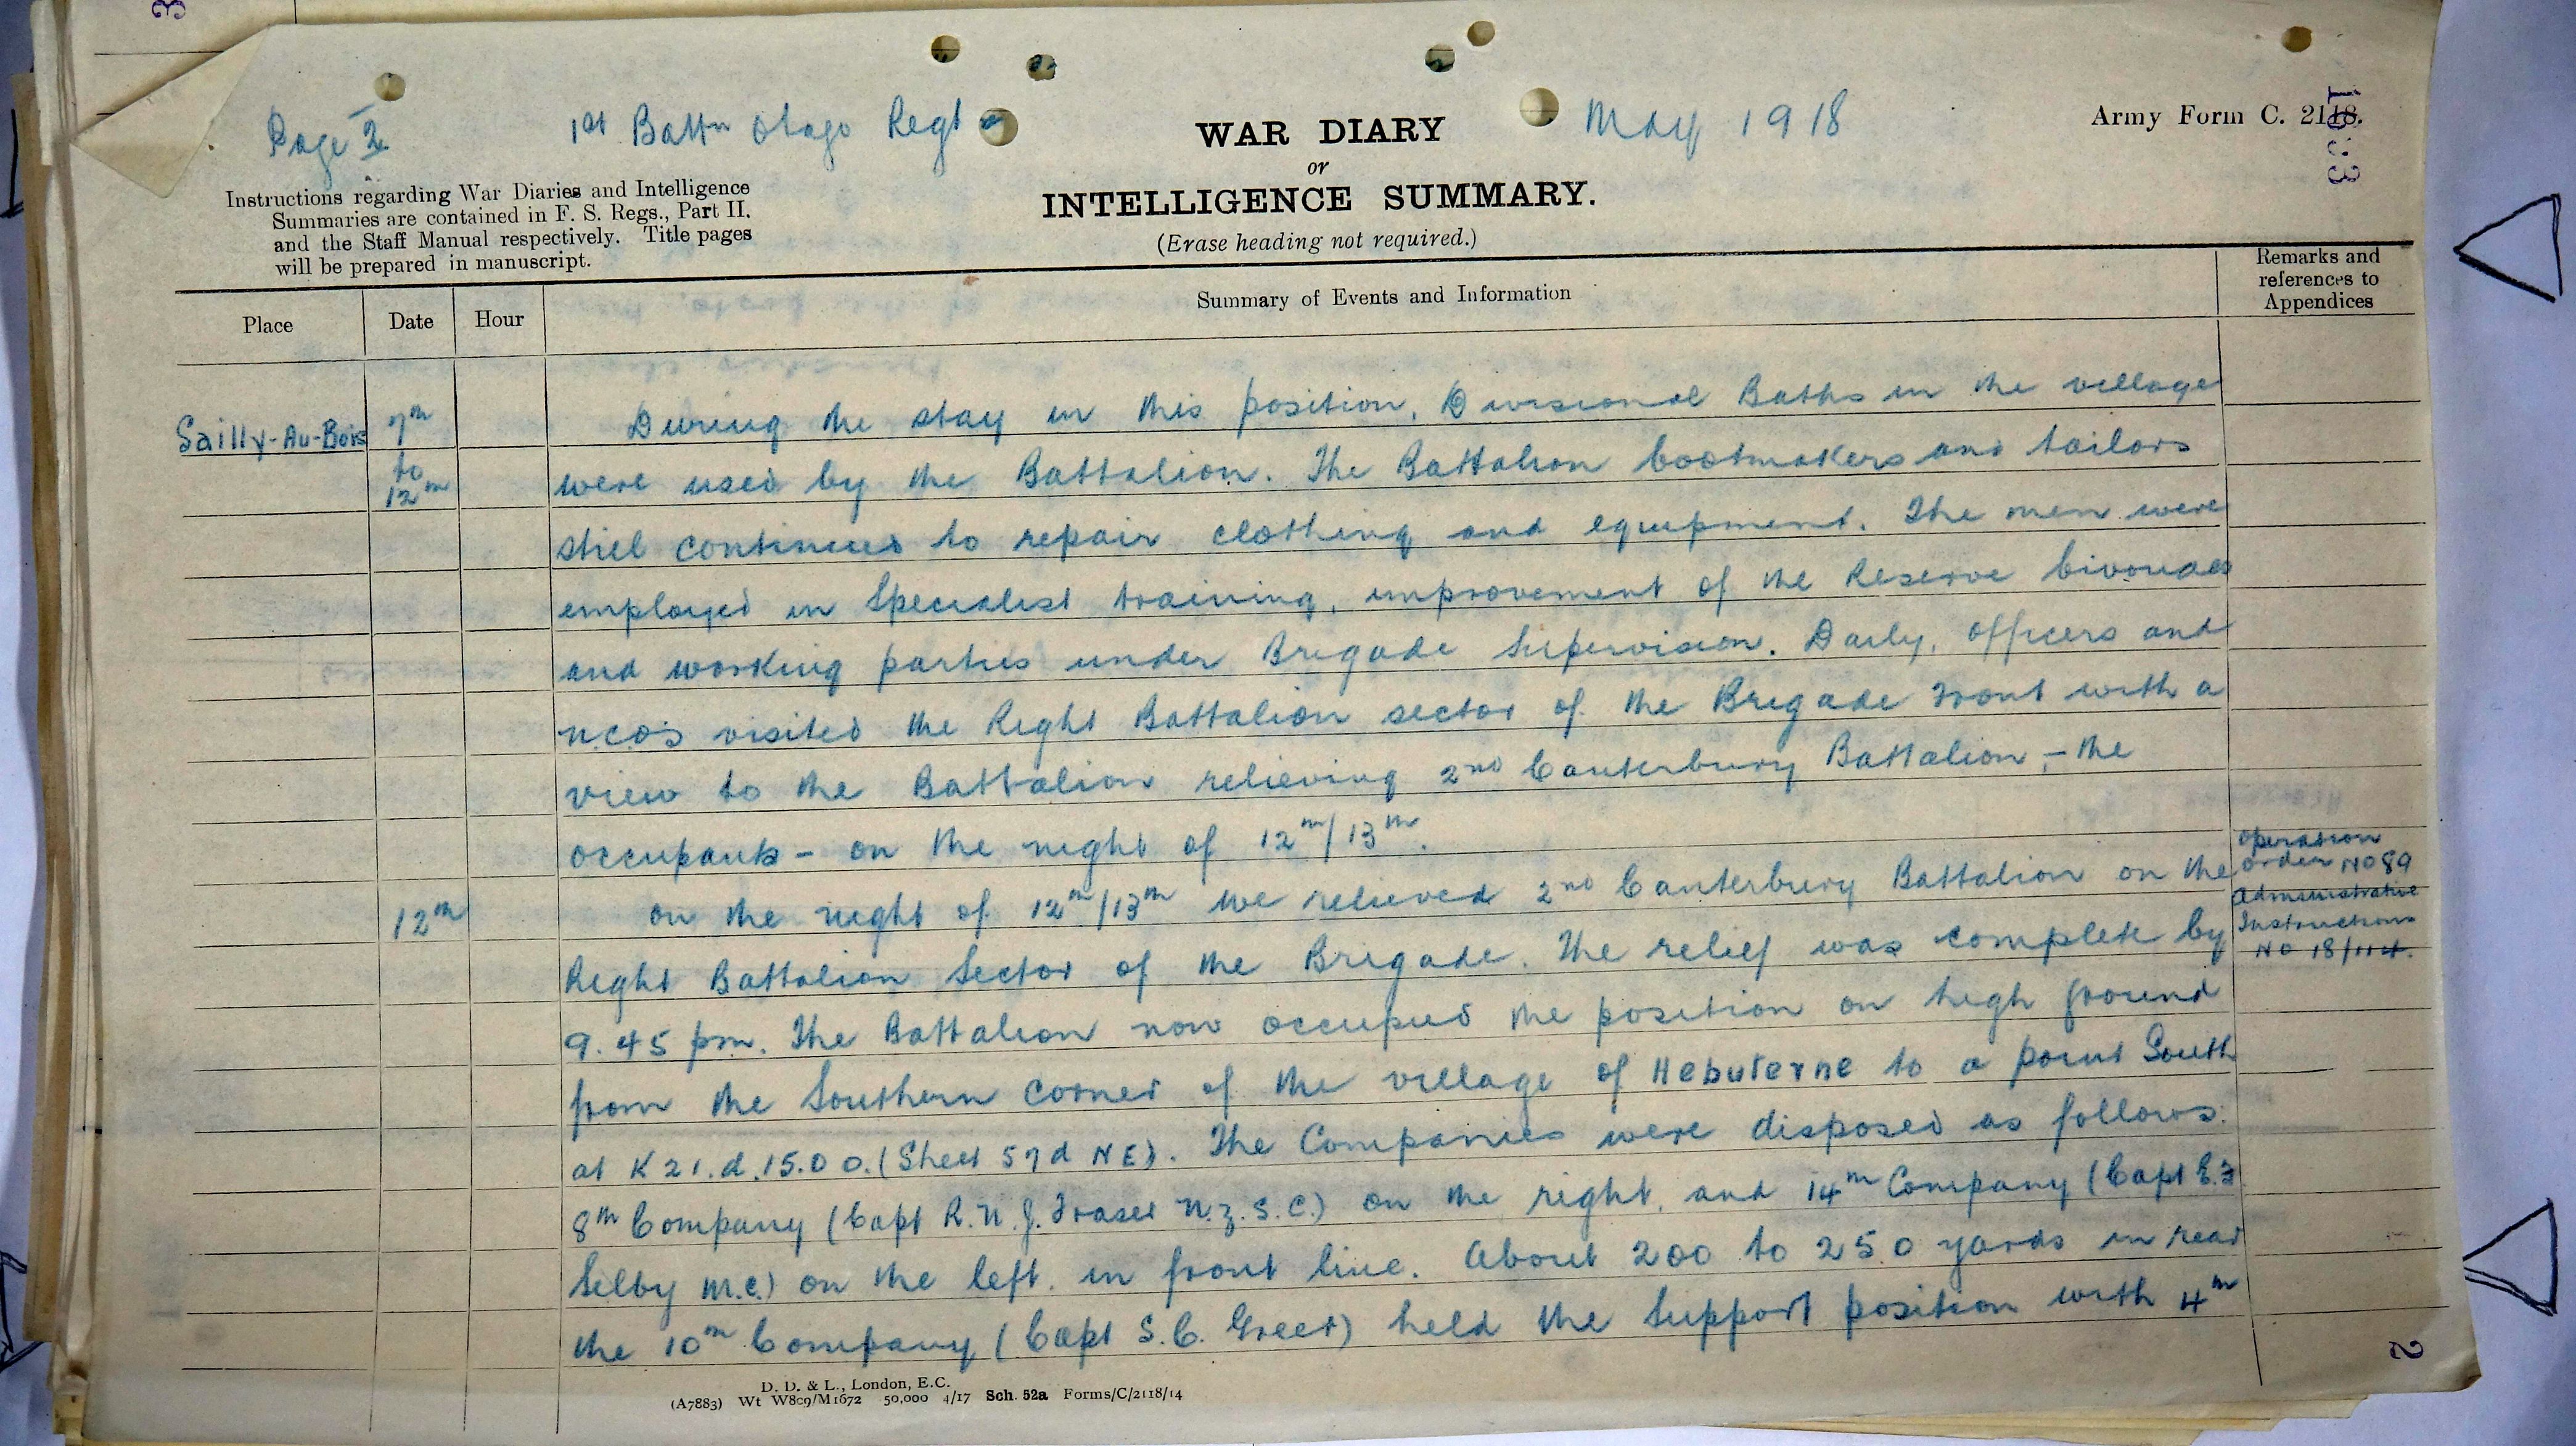 Page 2
1st Battn Otago Regt
WAR DIARY
or
INTELLIGENCE SUMMARY.
(Erase heading not required.)
May 1918
Army Form C. 2118.
Instructions regarding War Diaries and Intelligence
Summaries are contained in F. S. Regs., Part II.
and the Staff Manual respectively. Title pages
will be prepared in manuscript.
Place
Date
Hour
Summary of Events and Information
Remarks and
references to
Appendices
Sailly-Au-Bois
7th
to
12th
During the stay in this position, Divisional Baths in the village
were used by the Battalion. The Battalion bootmakers and tailors
still continued to repair clothing and equipment. The men were
employed in Specialist training, improvement of the Reserve bivouacs
and working parties under Brigade Supervision. Daily, officers and
N.C.O's visited the Right Battalion sector of the Brigade front with a
view to the Battalion relieving 2nd Canterbury Battalion, - the
occupants - on the night of 12th/13th.
12th
On the night of 12th/13th we relieved 2nd Canterbury Battalion on the
Right Battalion Sector of the Brigade. The relief was complete by
9.45 pm. The Battalion now occupied the position on high ground
from the Southern corner of the village of Hebuterne to a point South
at K 21.d.15.00. (Sheet 57d NE). The Companies were disposed as follows.
8th Company (Capt R.N.J. Fraser N.Z.S.C.) on the right, and 14th Company (Capt E.F
Selby M.C.) on the left. in front line. About 200 to 250 yards in rear
the 10th Company (Capt S.C. Greer) held the Support position with 4th
Operation
Order No 89
Administrative
Instructions
No 18/114.
D. D. & L., London, E.C.
(A7883) Wt W809/M1672 50,000 4/17 Sch. 52a Forms/C/2118/14
2